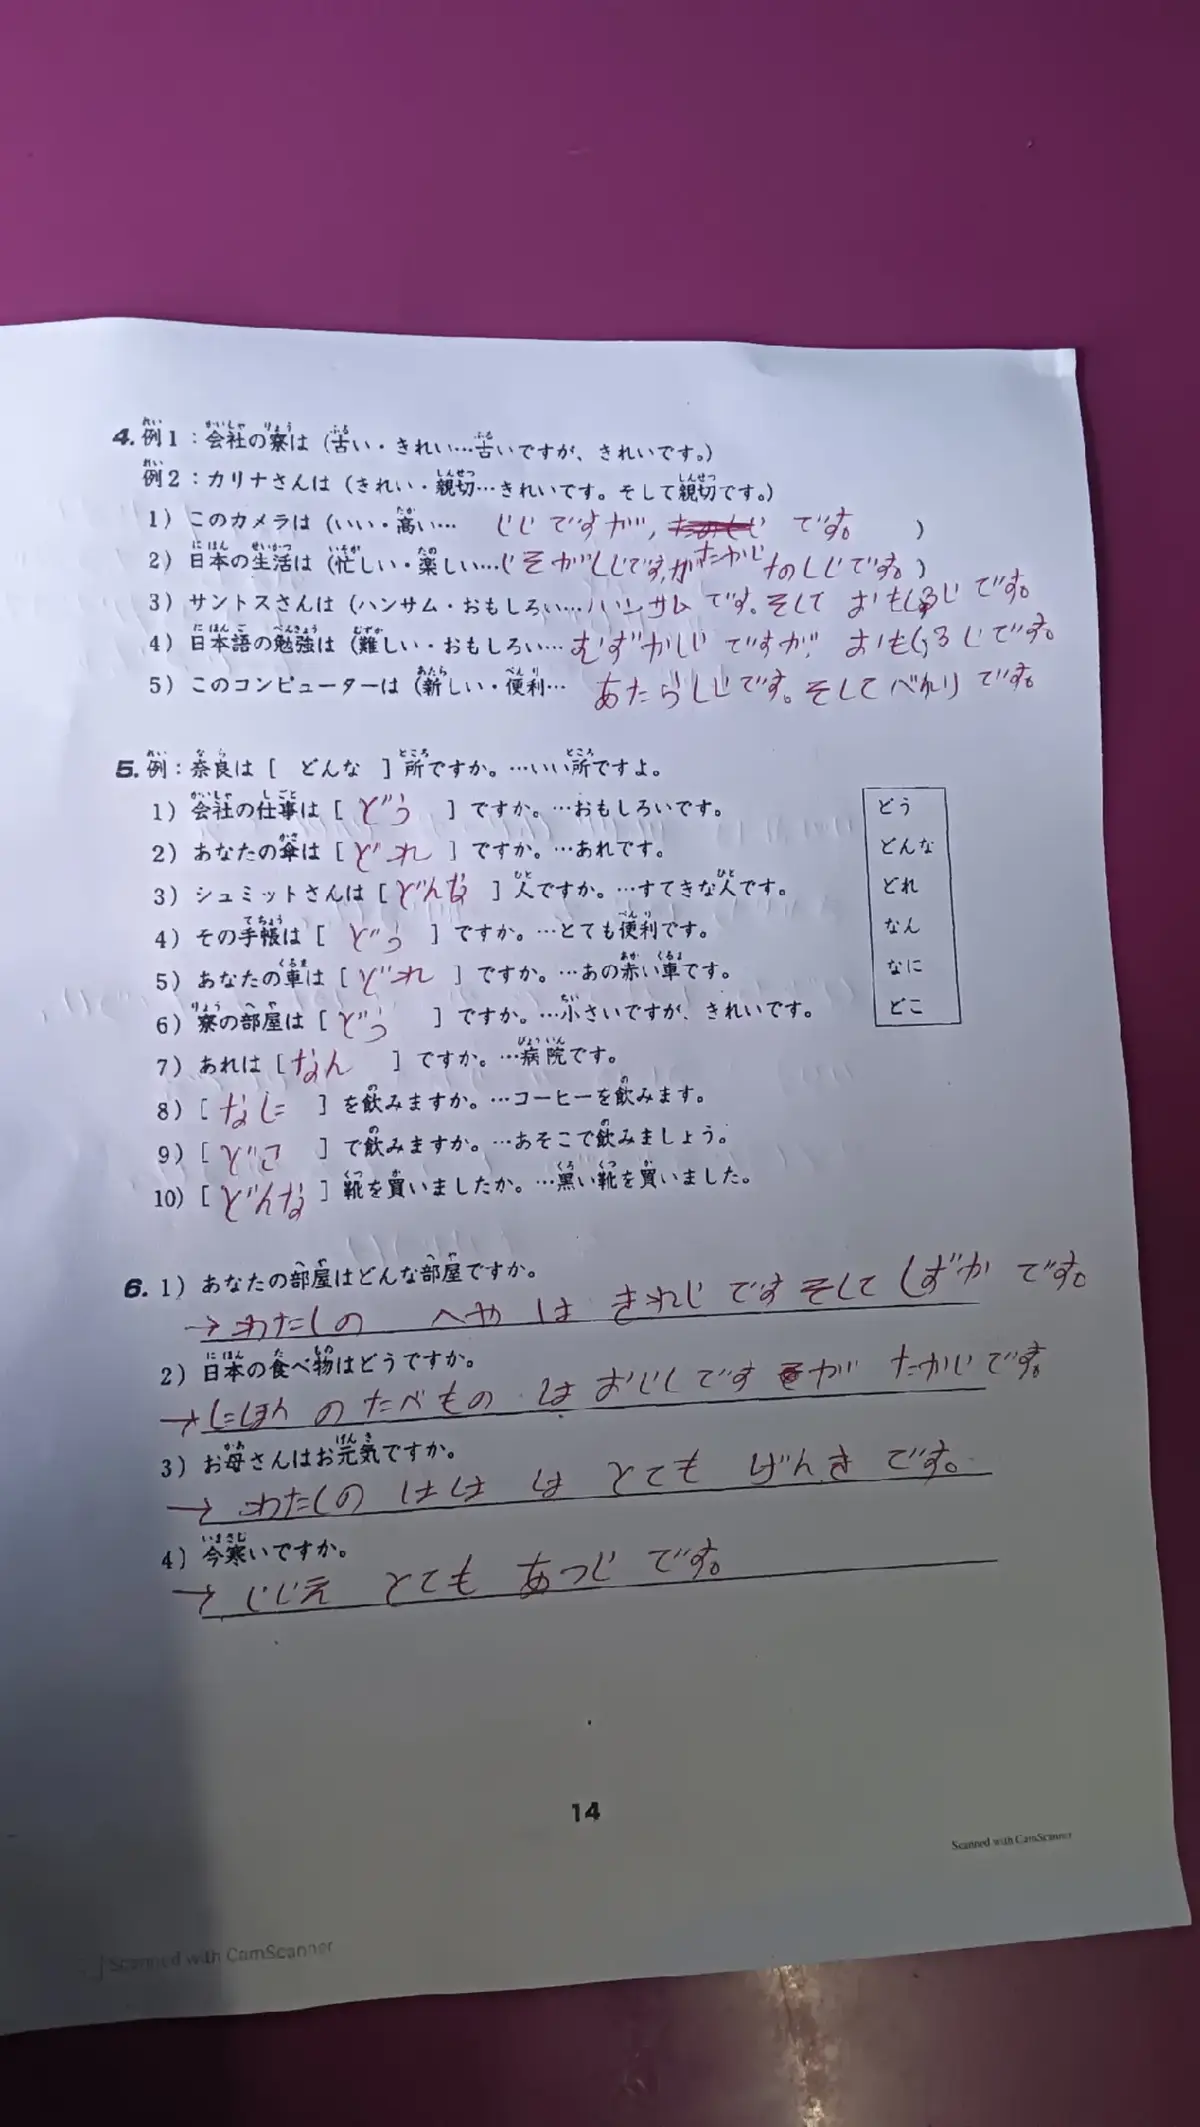 4. 例1：会社の寮は（古い・きれい…古いですが、きれいです。）
例2：カリナさんは（きれい・親切…きれいです。そして親切です。）
1）このカメラは（いい・高い… いいですが, です。 ）
2）日本の生活は（忙しい・楽しい…いそがしいです,が たかい たのしいです。）
3）サントスさんは（ハンサム・おもしろい…ハンサムです。そして おもしろいです。
4）日本語の勉強は（難しい・おもしろい…むずかしいですが おもしろいです。
5）このコンピューターは（新しい・便利… あたらしいです。そしてべんりです。
5. 例：奈良は［ どんな ］所ですか。…いい所ですよ。
1）会社の仕事は［ どう ］ですか。…おもしろいです。
2）あなたの傘は［ どれ ］ですか。…あれです。
3）シュミットさんは［ どんな ］人ですか。…すてきな人です。
4）その手帳は［ どう ］ですか。…とても便利です。
5）あなたの車は［ どれ ］ですか。…あの赤い車です。
6）寮の部屋は［ どう ］ですか。…小さいですが、きれいです。
7）あれは［ なん ］ですか。…病院です。
8）［ なに ］を飲みますか。…コーヒーを飲みます。
9）［ どこ ］で飲みますか。…あそこで飲みましょう。
10）［ どんな ］靴を買いましたか。…黒い靴を買いました。
どう
どんな
どれ
なん
なに
どこ
6. 1）あなたの部屋はどんな部屋ですか。
→わたしの へや は きれい です そして しずか です。
2）日本の食べ物はどうですか。
→にほん の たべもの は おいしです が たかいです。
3）お母さんはお元気ですか。
→わたしの はは は とても げんき です。
4）今寒いですか。
→いいえ とても あつい です。
14
Scanned with CamScanner
Scanned with CamScanner